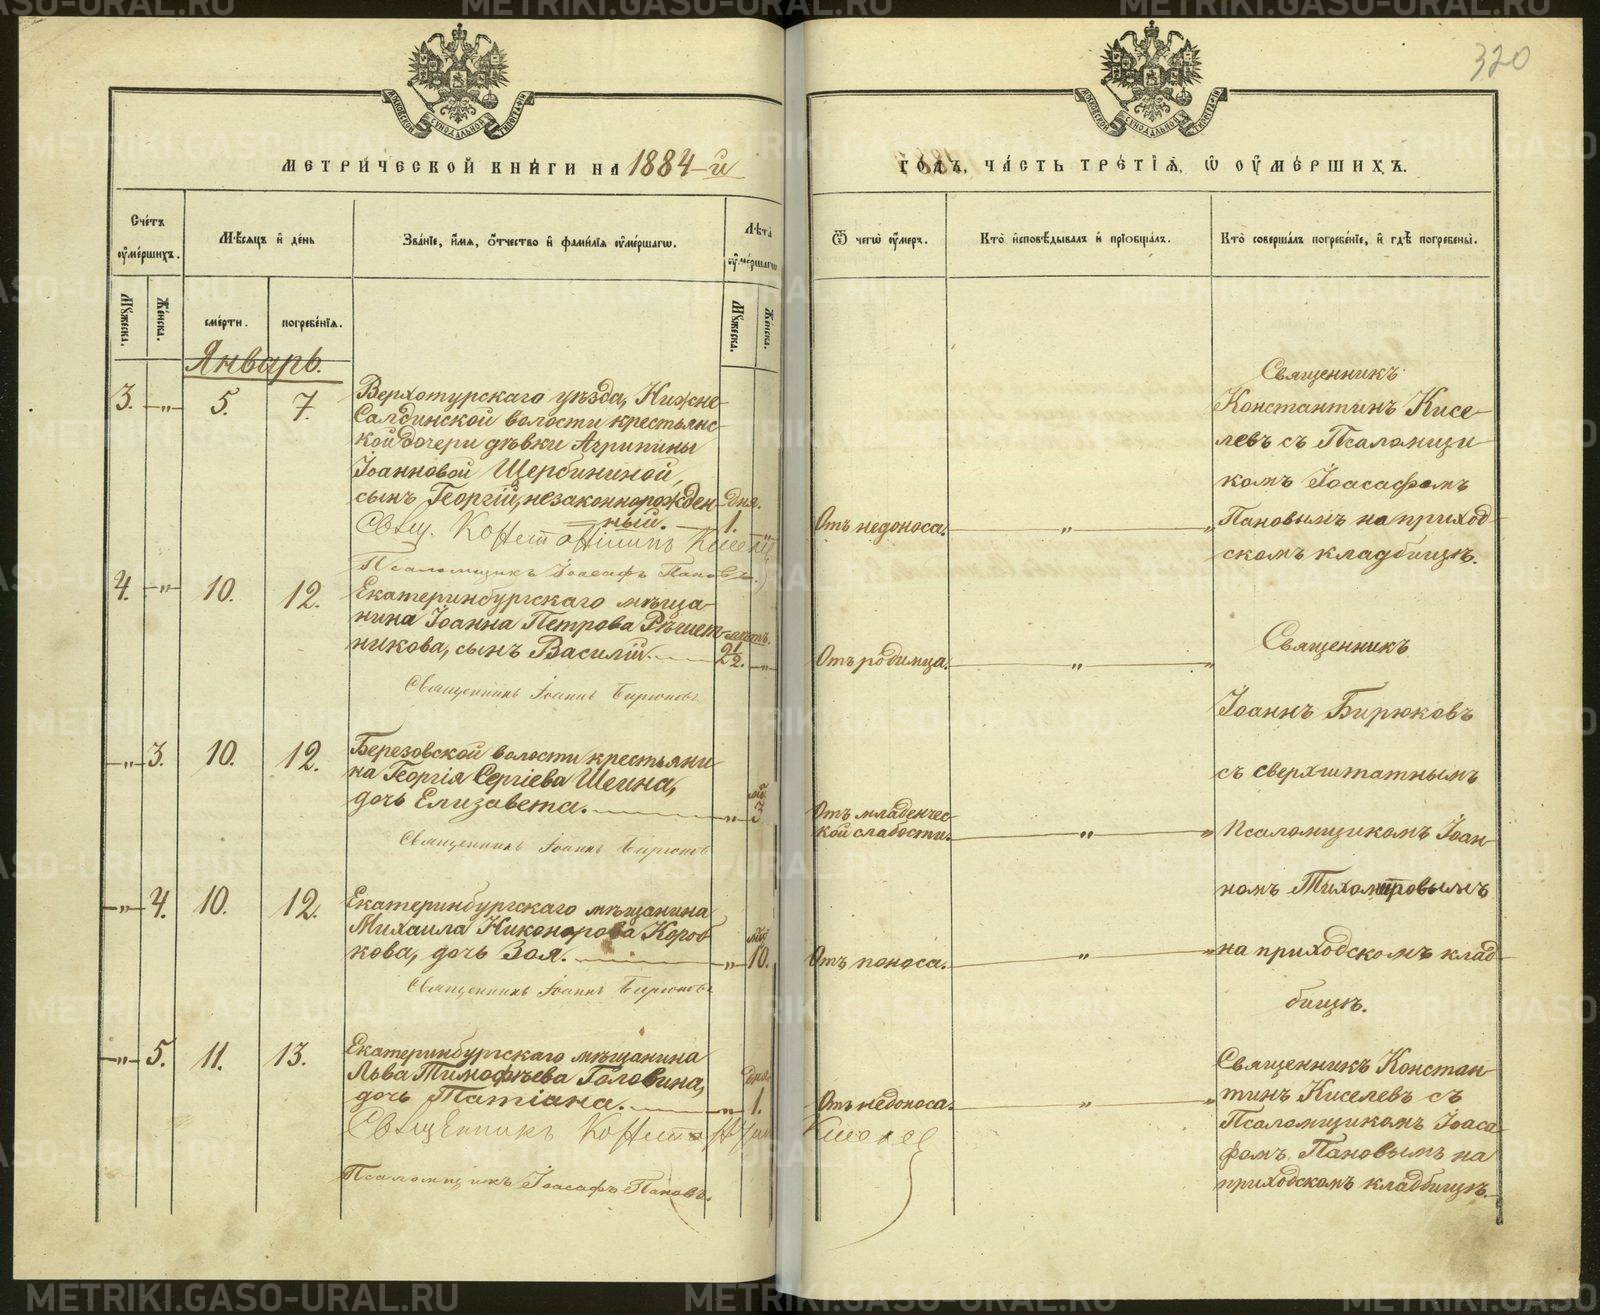 320
МЕТРИ́ЧЕСКОЙ КНИ́ГИ НА 1884-й
ГО́ДЪ, ЧА́СТЬ ТРЕ́ТІЯ, Ѿ ОУМЕ́РШИХЪ.
Сче́тъ оуме́ршихъ.
Мѣ́сяцъ и де́нь
Зва́ніе, и́мя, о́тчество и фами́лія оуме́ршагѡ.
Лѣ́та оуме́ршагѡ
Ѿ чегѡ̀ оу́меръ.
Кто̀ и҆сповѣ́дывалъ и҆ прїѡбща́лъ.
Кто̀ соверша́лъ погребе́ніе, и҆ гдѣ̀ погребены̀.
Мꙋ́жеска.
Же́нска.
сме́рти.
погребе́нія.
Мꙋ́жеска.
Же́нска.
Январь.
3. — „ — 5. 7.
Верхотурскаго уѣзда, Нижне-
Салдинской волости крестьянс-
кой дочери дѣвки Агрипины
Іоанновой Щербининой,
сынъ Георгій, незаконнорожден- дня.
ный. — 1. „
Свящ. Константинъ Киселевъ
Псаломщикъ Іоасафъ Пановъ.
Отъ недоноса. „ „
Священникъ
Константинъ Кисе-
левъ съ Псаломщи-
комъ Іоасафомъ
Пановымъ на приход-
скомъ кладбищѣ.
4. — „ — 10. 12.
Екатеринбургскаго мѣща-
нина Іоанна Петрова Рѣшет- лѣтъ.
никова, сынъ Василій. 2 1/2. — „
Священникъ Іоаннъ Бирюковъ
Отъ родимца. „ „
Священникъ
Іоаннъ Бирюковъ
съ сверхштатнымъ
псаломщикомъ Іоан-
номъ Тихомировымъ
на приходскомъ клад-
бищѣ.
— „ — 3. 10. 12.
Березовской волости крестьяни-
на Георгія Сергіева Шеина,
дочь Елизавета. „ 3
Священникъ Іоаннъ Бирюковъ
Отъ младенчес-
кой слабости. „ „
— „ — 4. 10. 12.
Екатеринбургскаго мѣщанина
Михаила Никонорова Короб-
кова, дочь Зоя. „ 10.
Священникъ Іоаннъ Бирюковъ
Отъ поноса. „ „
— „ — 5. 11. 13.
Екатеринбургскаго мѣщанина
Льва Тимофѣева Головина, дня
дочь Татіана. „ 1.
Священникъ Константинъ
Киселев
Псаломщикъ Іоасафъ Пановъ.
Отъ недоноса. „ „
Священникъ Констан-
тинъ Киселевъ съ
Псаломщикомъ Іоаса-
фомъ Пановымъ на
приходскомъ кладбищѣ.
METRIKI.GASO-URAL.RU